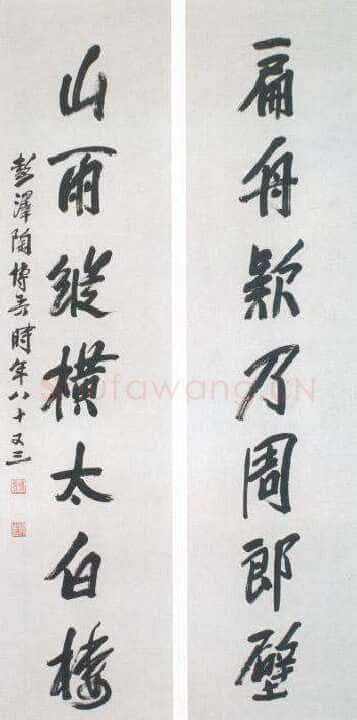 扁舟欸乃周郎壁
山雨縱橫太白樓
彭澤陶博吾時年八十又三
shufawang.CN